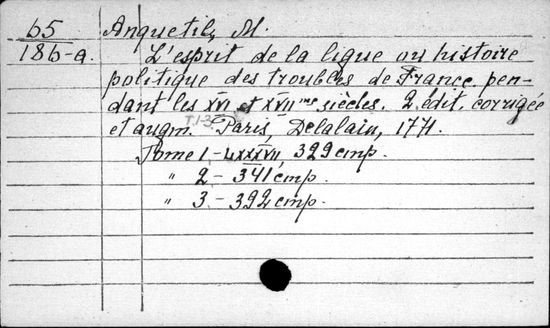 65
186-a.
Anquetil, M.
L'esprit de la ligue ou histoire
politique des troubles de France pen-
dant les XVI et XVII me siècles. 2. édit. corrigée
et augm. T.1-3. Paris, Delalain, 1771.
Tome 1 - LXXXVII, 329 cmp.
" 2 - 341 cmp.
" 3 - 392 cmp.